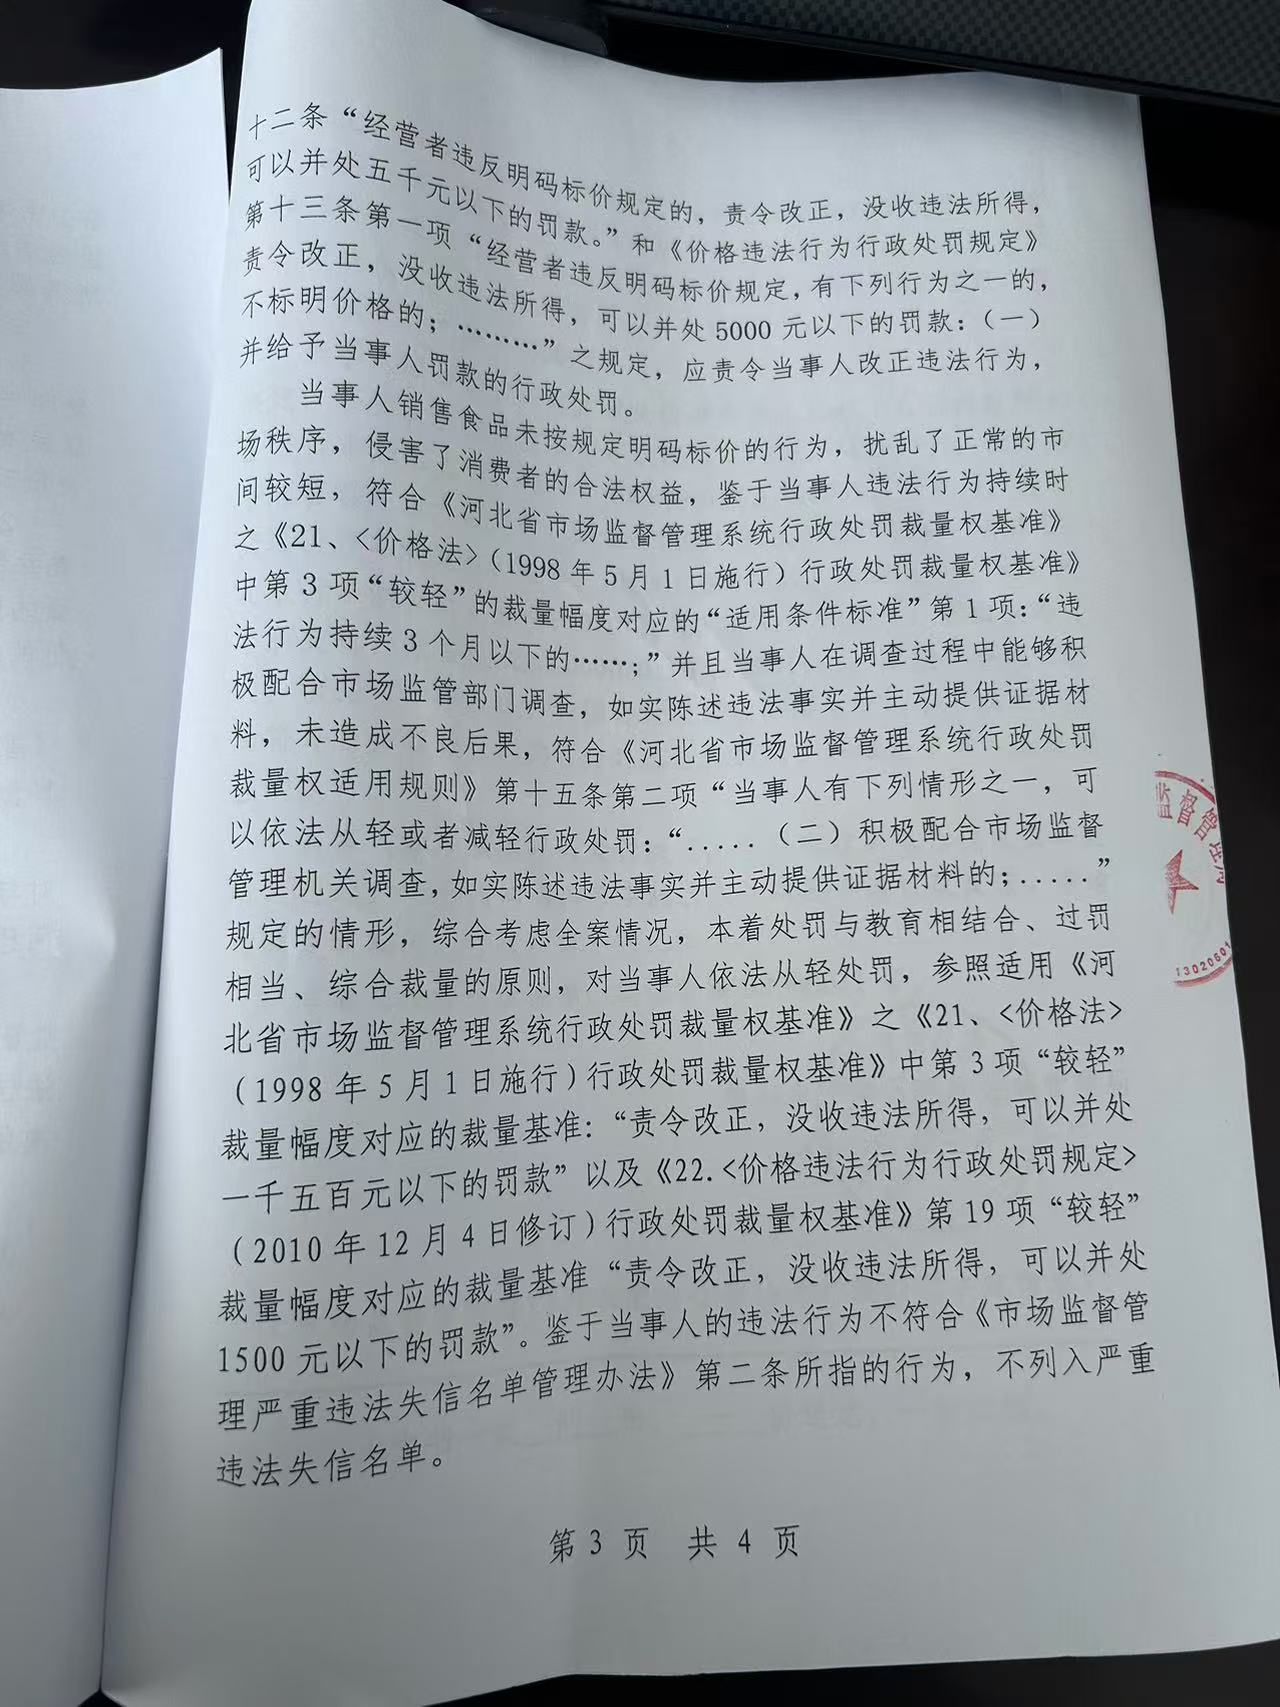 十二条“经营者违反明码标价规定的，责令改正，没收违法所得，
可以并处五千元以下的罚款。”和《价格违法行为行政处罚规定》
第十三条第一项“经营者违反明码标价规定，有下列行为之一的，
责令改正，没收违法所得，可以并处 5000 元以下的罚款：（一）
不标明价格的；………”之规定，应责令当事人改正违法行为，
并给予当事人罚款的行政处罚。
当事人销售食品未按规定明码标价的行为，扰乱了正常的市
场秩序，侵害了消费者的合法权益，鉴于当事人违法行为持续时
间较短，符合《河北省市场监督管理系统行政处罚裁量权基准》
之《21、<价格法>（1998 年 5 月 1 日施行）行政处罚裁量权基准》
中第 3 项“较轻”的裁量幅度对应的“适用条件标准”第 1 项：“违
法行为持续 3 个月以下的……；”并且当事人在调查过程中能够积
极配合市场监管部门调查，如实陈述违法事实并主动提供证据材
料，未造成不良后果，符合《河北省市场监督管理系统行政处罚
裁量权适用规则》第十五条第二项“当事人有下列情形之一，可
以依法从轻或者减轻行政处罚：“.....（二）积极配合市场监督
管理机关调查，如实陈述违法事实并主动提供证据材料的；.....”
规定的情形，综合考虑全案情况，本着处罚与教育相结合、过罚
相当、综合裁量的原则，对当事人依法从轻处罚，参照适用《河
北省市场监督管理系统行政处罚裁量权基准》之《21、<价格法>
（1998 年 5 月 1 日施行）行政处罚裁量权基准》中第 3 项“较轻”
裁量幅度对应的裁量基准：“责令改正，没收违法所得，可以并处
一千五百元以下的罚款”以及《22.<价格违法行为行政处罚规定>
（2010 年 12 月 4 日修订）行政处罚裁量权基准》第 19 项“较轻”
裁量幅度对应的裁量基准“责令改正，没收违法所得，可以并处
1500 元以下的罚款”。鉴于当事人的违法行为不符合《市场监督管
理严重违法失信名单管理办法》第二条所指的行为，不列入严重
违法失信名单。
第 3 页 共 4 页
监督管
13020601